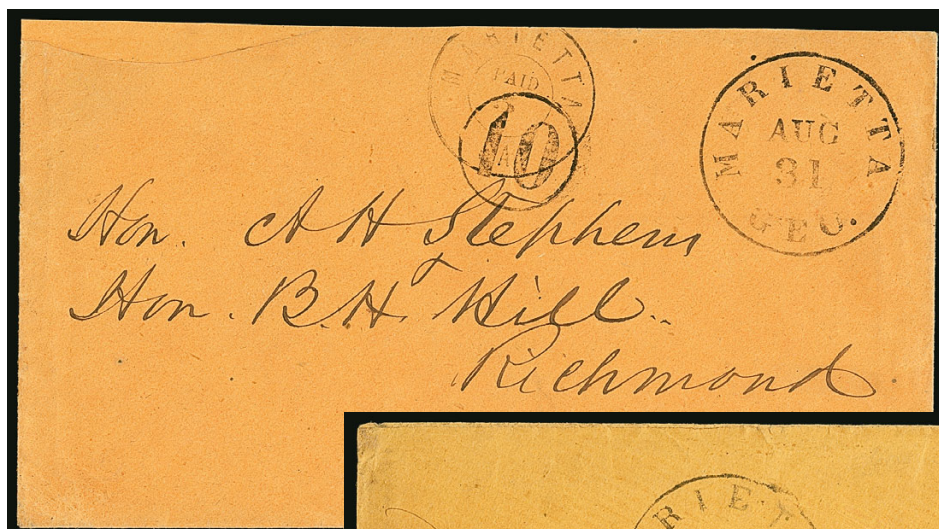 MARIETTA
PAID
10
MARIETTA
AUG
31
GEO.
Hon. A H Stephens
Hon. B. H. Hill.
Richmond
RIET